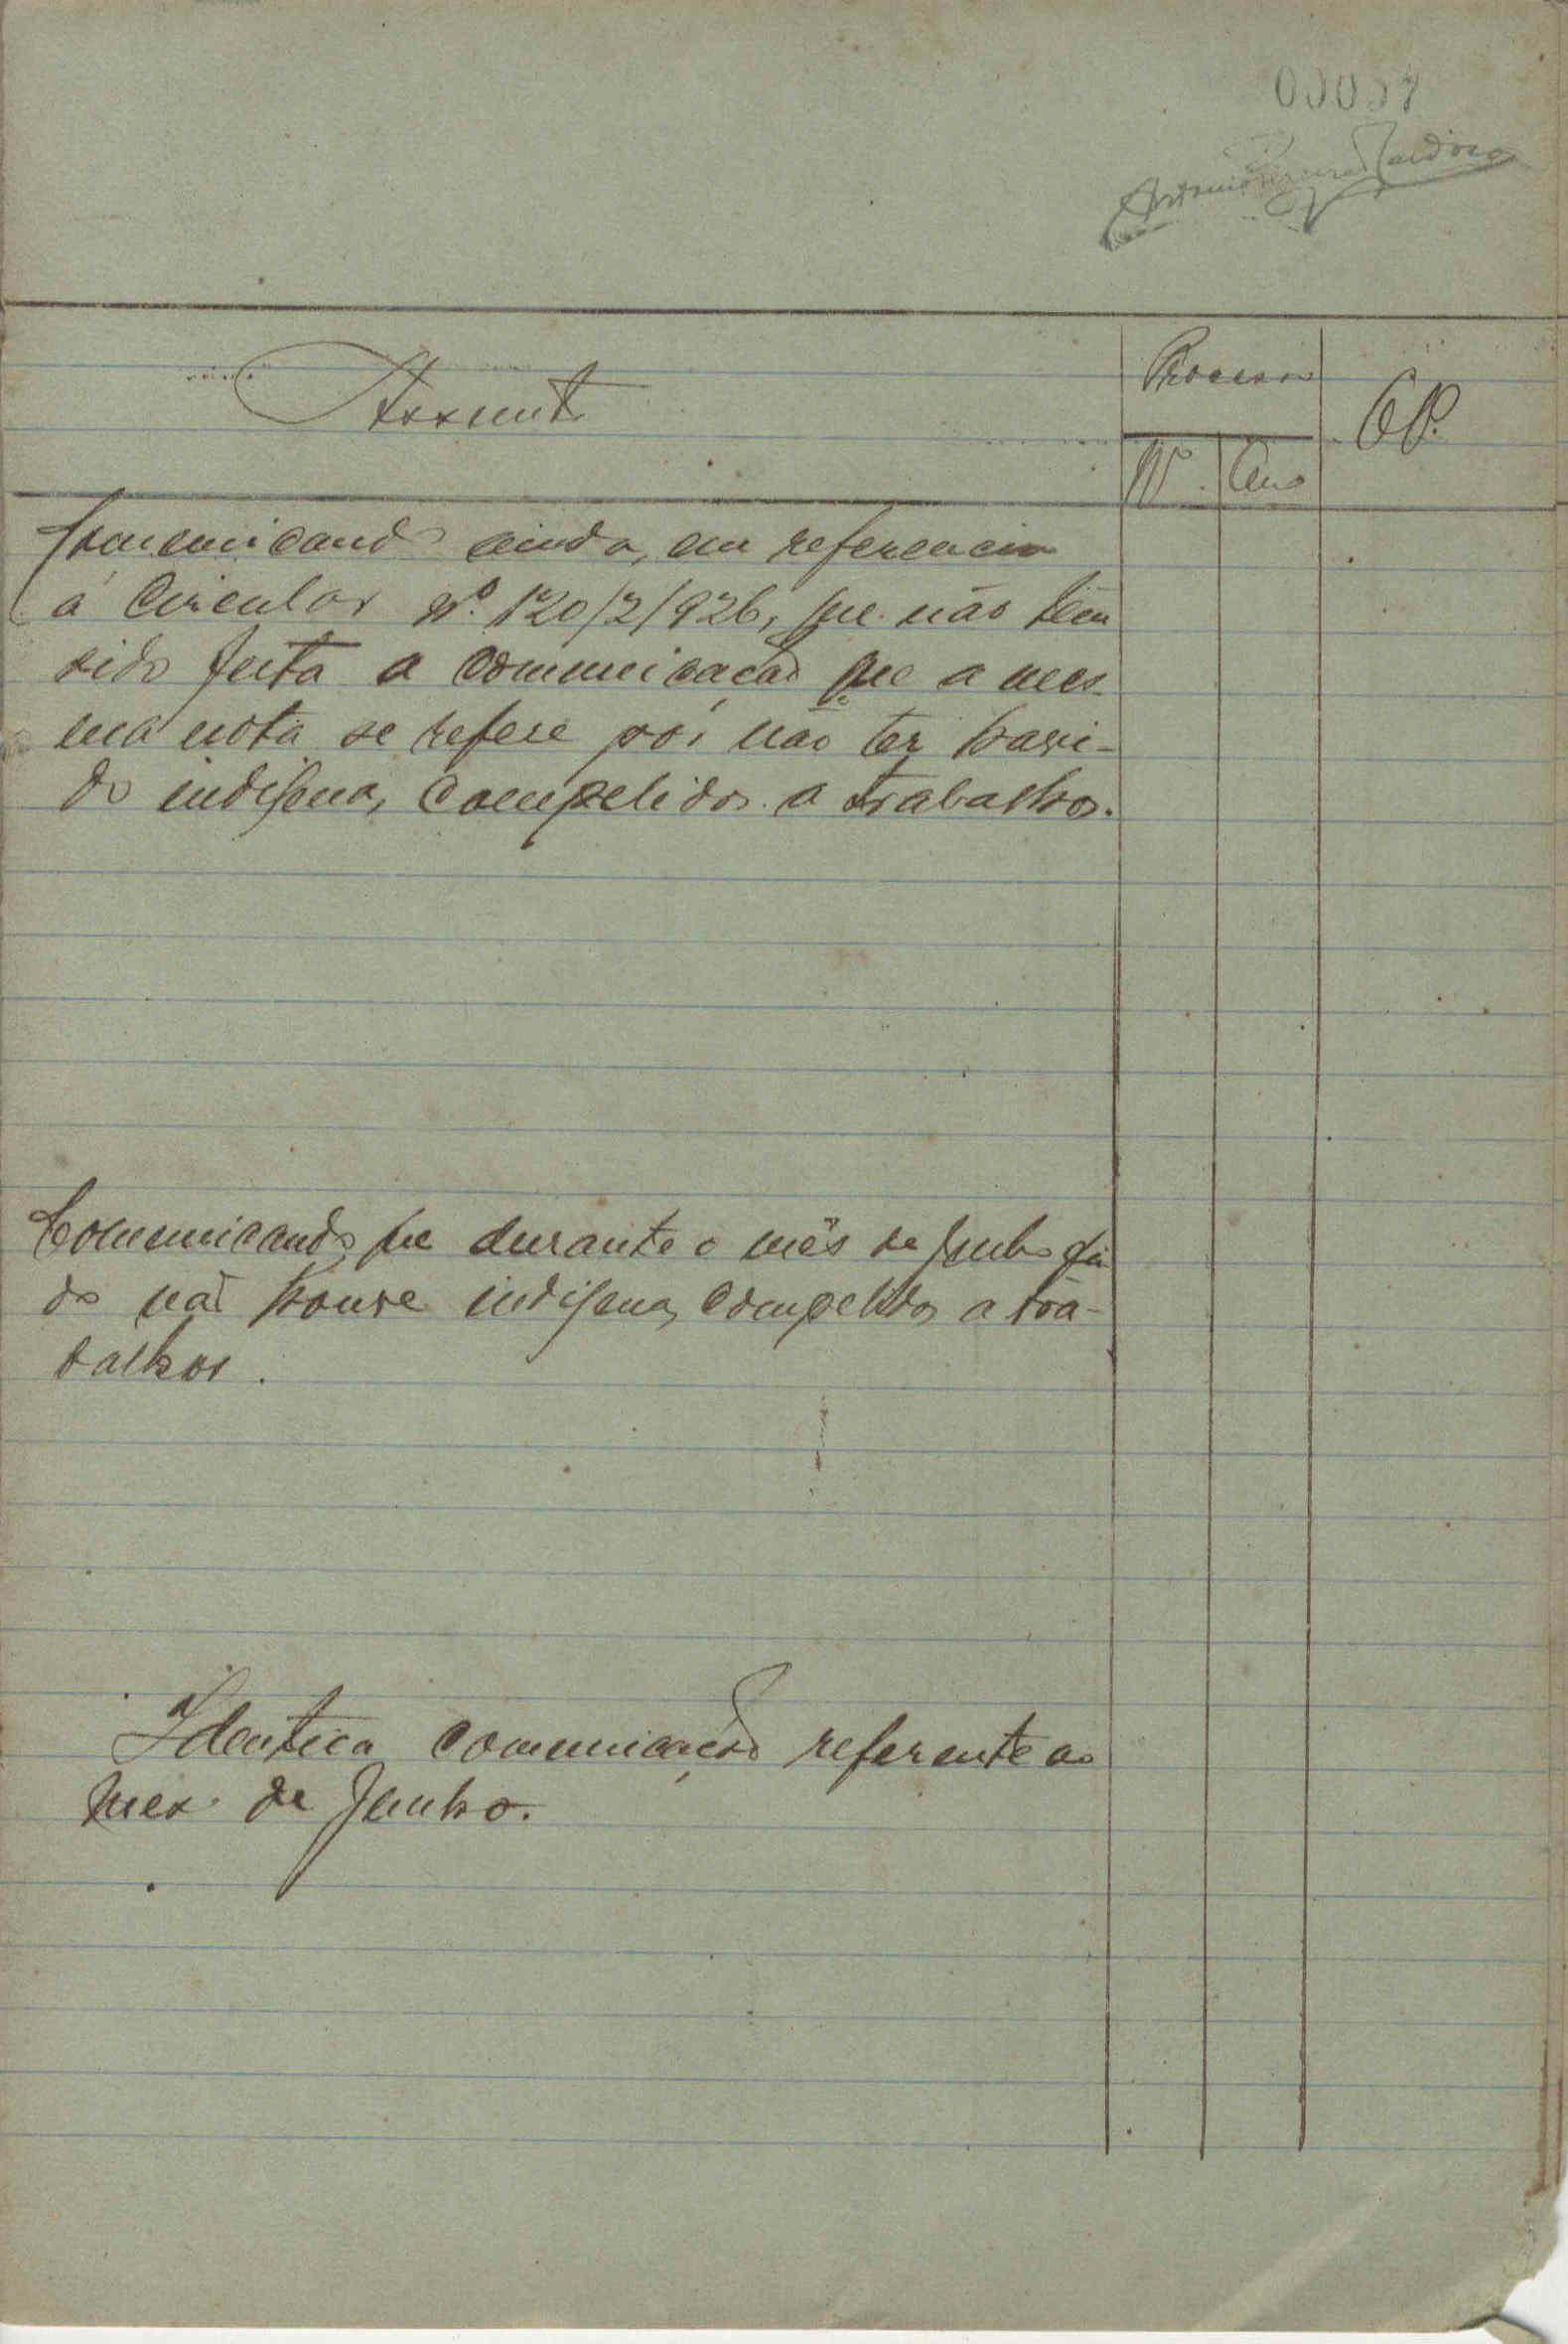 Antonio Cardoso
Assunto
Processo
Nº. Ano
Comunicando ainda, em referencia
á Circular Nº. 120/2/926, que não tem
sido feita a comunicação que a mes-
ma nota se refere por não ter havi-
do indigenas compelidos a trabalhos.
Comunicando que durante o mês de Junho fin
do não houve indigenas compelidos a tra-
balhos.
Identica comunicação referente ao
mes de Junho.